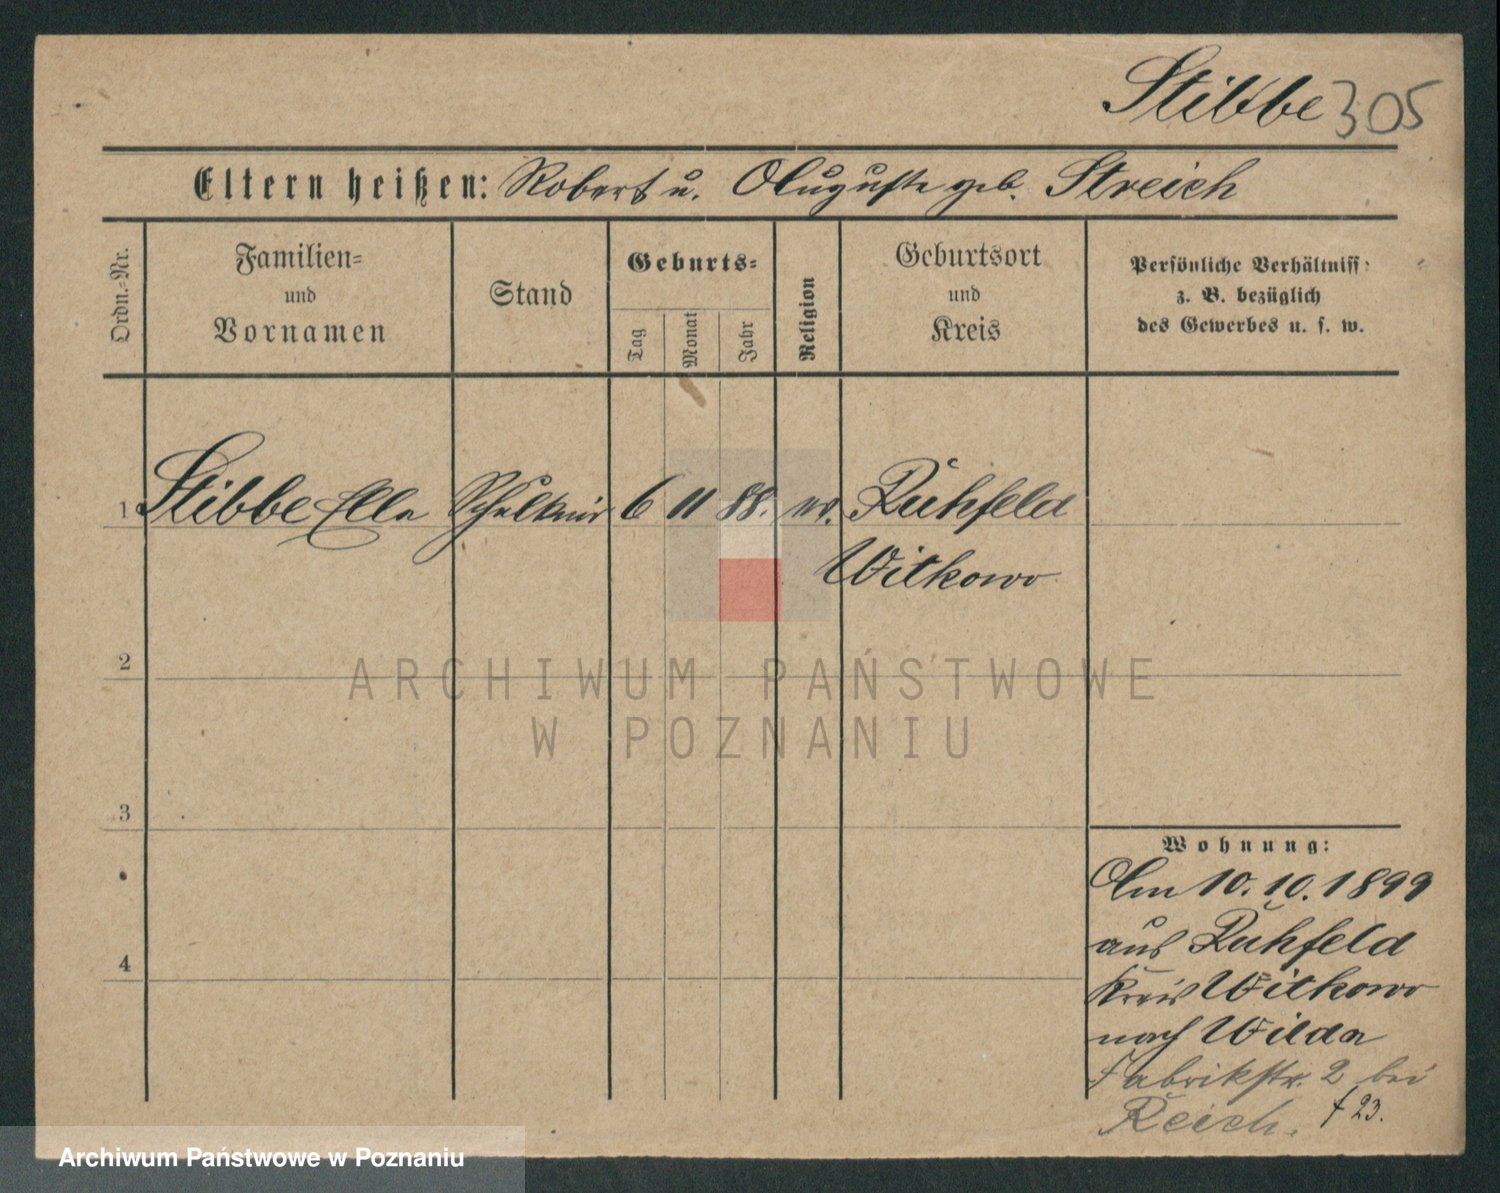 Stibbe 305
Eltern heißen: Robert u. Auguste geb. Streich
Ordn.-Nr.
Familien-
und
Vornamen
Stand
Geburts-
Tag
Monat
Jahr
Religion
Geburtsort
und
Kreis
Persönliche Verhältniss
z. B. bezüglich
des Gewerbes u. s. w.
1 Stibbe Ella 6 11 88. Ruhfeld
Witkowo
2
ARCHIWUM PAŃSTWOWE
W POZNANIU
3
Wohnung:
Am 10.10.1899
aus Ruhfeld
4
Kreis Witkowo
nach Wilda
Fabrikstr. 2 bei
Reich. 23.
Archiwum Państwowe w Poznaniu